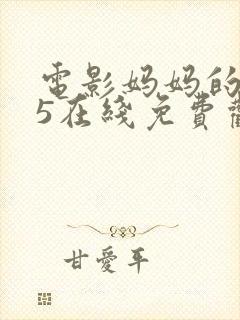 電影妈妈的
5在綫免費
甘愛平